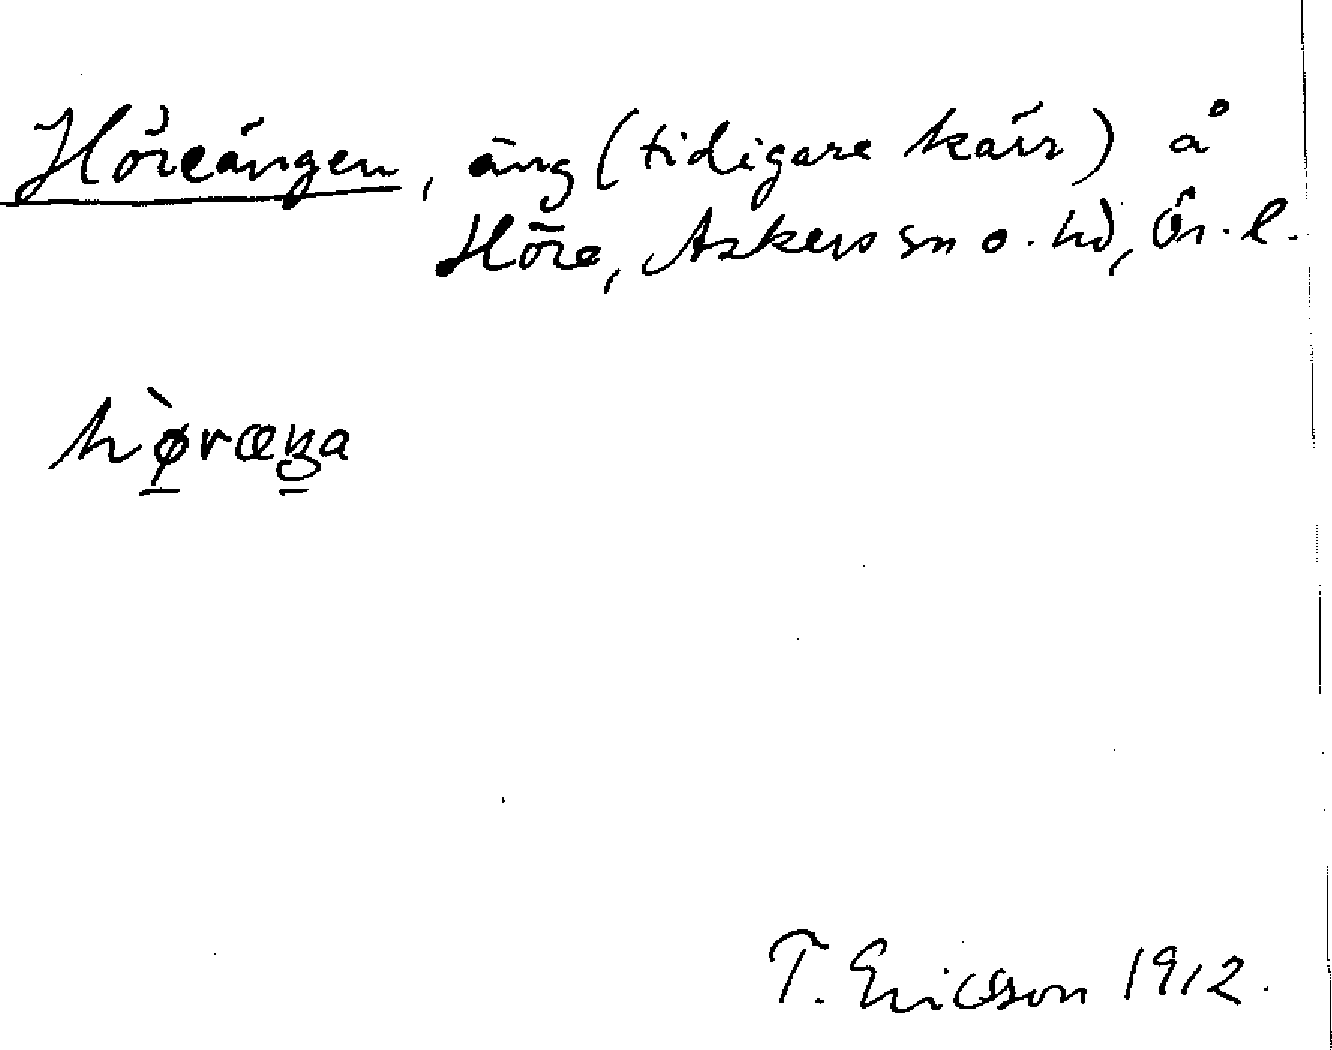 Höreängen, äng (tidigare kärr) å
Höre, Askers sn o. hd, Ör. l.
hø̀ræŋa
T. Ericsson 1912.